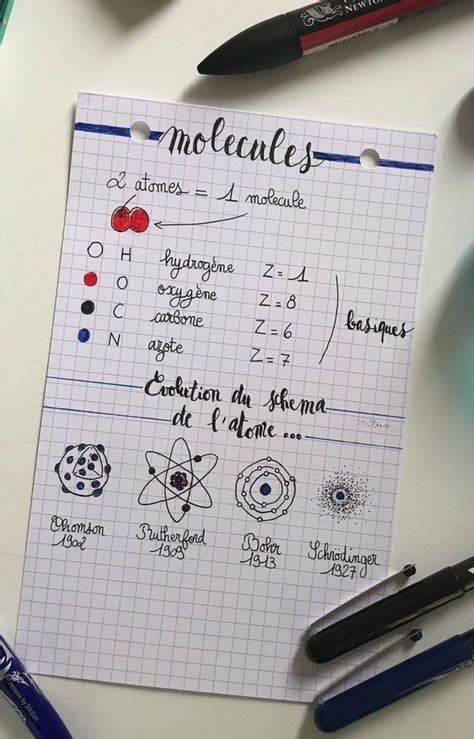 NEWTON
molecules
2 atomes = 1 molecule
O H hydrogène Z = 1
O oxygène Z = 8
C carbone Z = 6
N azote Z = 7
basiques
Évolution du schema
de l'atome ...
Thomson Rutherford Bohr Schrödinger
1902 1909 1913 1927
remove by friction